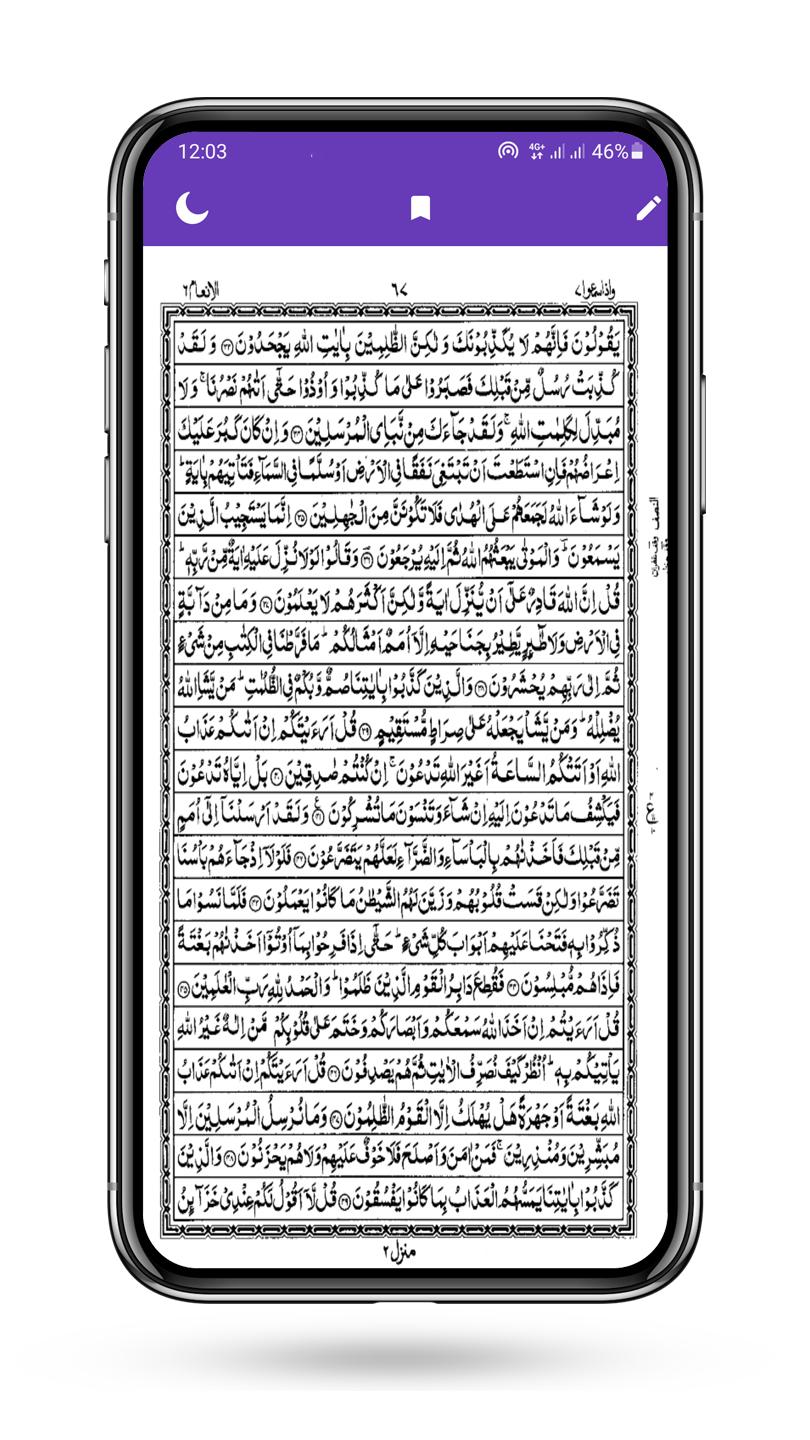 12:03 4G+ 46%
واذاسمعوا٧ ٦٧ الانعام٦
يَقُوْلُوْنَ فَاِنَّهُمْ لَا يُكَذِّبُوْنَكَ وَ لٰكِنَّ الظّٰلِمِيْنَ بِاٰيٰتِ اللّٰهِ يَجْحَدُوْنَ ﴿۳۳﴾ وَ لَقَدْ
كُذِّبَتْ رُسُلٌ مِّنْ قَبْلِكَ فَصَبَرُوْا عَلٰى مَا كُذِّبُوْا وَ اُوْذُوْا حَتّٰۤى اَتٰىهُمْ نَصْرُنَا ۚ وَ لَا
مُبَدِّلَ لِكَلِمٰتِ اللّٰهِ ۚ وَ لَقَدْ جَآءَكَ مِنْ نَّبَاِى الْمُرْسَلِيْنَ ﴿۳۴﴾ وَ اِنْ كَانَ كَبُرَ عَلَيْكَ
اِعْرَاضُهُمْ فَاِنِ اسْتَطَعْتَ اَنْ تَبْتَغِيَ نَفَقًا فِي الْاَرْضِ اَوْ سُلَّمًا فِي السَّمَآءِ فَتَاْتِيَهُمْ بِاٰيَةٍ ؕ
وَ لَوْ شَآءَ اللّٰهُ لَجَمَعَهُمْ عَلَى الْهُدٰى فَلَا تَكُوْنَنَّ مِنَ الْجٰهِلِيْنَ ﴿۳۵﴾ اِنَّمَا يَسْتَجِيْبُ الَّذِيْنَ
يَسْمَعُوْنَ ؔؕ وَ الْمَوْتٰى يَبْعَثُهُمُ اللّٰهُ ثُمَّ اِلَيْهِ يُرْجَعُوْنَ ﴿۳۶﴾ وَ قَالُوْا لَوْ لَا نُزِّلَ عَلَيْهِ اٰيَةٌ مِّنْ رَّبِّهٖ ؕ
قُلْ اِنَّ اللّٰهَ قَادِرٌ عَلٰۤى اَنْ يُّنَزِّلَ اٰيَةً وَّ لٰكِنَّ اَكْثَرَهُمْ لَا يَعْلَمُوْنَ ﴿۳۷﴾ وَ مَا مِنْ دَآبَّةٍ
فِي الْاَرْضِ وَ لَا طٰٓىِٕرٍ يَّطِيْرُ بِجَنَاحَيْهِ اِلَّاۤ اُمَمٌ اَمْثَالُكُمْ ؕ مَا فَرَّطْنَا فِي الْكِتٰبِ مِنْ شَيْءٍ
ثُمَّ اِلٰى رَبِّهِمْ يُحْشَرُوْنَ ﴿۳۸﴾ وَ الَّذِيْنَ كَذَّبُوْا بِاٰيٰتِنَا صُمٌّ وَّ بُكْمٌ فِي الظُّلُمٰتِ ؕ مَنْ يَّشَاِ اللّٰهُ
يُضْلِلْهُ ؕ وَ مَنْ يَّشَاْ يَجْعَلْهُ عَلٰى صِرَاطٍ مُّسْتَقِيْمٍ ﴿۳۹﴾ قُلْ اَرَءَيْتَكُمْ اِنْ اَتٰىكُمْ عَذَابُ
اللّٰهِ اَوْ اَتَتْكُمُ السَّاعَةُ اَغَيْرَ اللّٰهِ تَدْعُوْنَ ۚ اِنْ كُنْتُمْ صٰدِقِيْنَ ﴿۴۰﴾ بَلْ اِيَّاهُ تَدْعُوْنَ
فَيَكْشِفُ مَا تَدْعُوْنَ اِلَيْهِ اِنْ شَآءَ وَ تَنْسَوْنَ مَا تُشْرِكُوْنَ ﴿۴۱﴾ وَ لَقَدْ اَرْسَلْنَاۤ اِلٰۤى اُمَمٍ
مِّنْ قَبْلِكَ فَاَخَذْنٰهُمْ بِالْبَاْسَآءِ وَ الضَّرَّآءِ لَعَلَّهُمْ يَتَضَرَّعُوْنَ ﴿۴۲﴾ فَلَوْ لَاۤ اِذْ جَآءَهُمْ بَاْسُنَا
تَضَرَّعُوْا وَ لٰكِنْ قَسَتْ قُلُوْبُهُمْ وَ زَيَّنَ لَهُمُ الشَّيْطٰنُ مَا كَانُوْا يَعْمَلُوْنَ ﴿۴۳﴾ فَلَمَّا نَسُوْا مَا
ذُكِّرُوْا بِهٖ فَتَحْنَا عَلَيْهِمْ اَبْوَابَ كُلِّ شَيْءٍ ؕ حَتّٰۤى اِذَا فَرِحُوْا بِمَاۤ اُوْتُوْۤا اَخَذْنٰهُمْ بَغْتَةً
فَاِذَا هُمْ مُّبْلِسُوْنَ ﴿۴۴﴾ فَقُطِعَ دَابِرُ الْقَوْمِ الَّذِيْنَ ظَلَمُوْا ؕ وَ الْحَمْدُ لِلّٰهِ رَبِّ الْعٰلَمِيْنَ ﴿۴۵﴾
قُلْ اَرَءَيْتُمْ اِنْ اَخَذَ اللّٰهُ سَمْعَكُمْ وَ اَبْصَارَكُمْ وَ خَتَمَ عَلٰى قُلُوْبِكُمْ مَّنْ اِلٰهٌ غَيْرُ اللّٰهِ
يَاْتِيْكُمْ بِهٖ ؕ اُنْظُرْ كَيْفَ نُصَرِّفُ الْاٰيٰتِ ثُمَّ هُمْ يَصْدِفُوْنَ ﴿۴۶﴾ قُلْ اَرَءَيْتَكُمْ اِنْ اَتٰىكُمْ عَذَابُ
اللّٰهِ بَغْتَةً اَوْ جَهْرَةً هَلْ يُهْلَكُ اِلَّا الْقَوْمُ الظّٰلِمُوْنَ ﴿۴۷﴾ وَ مَا نُرْسِلُ الْمُرْسَلِيْنَ اِلَّا
مُبَشِّرِيْنَ وَ مُنْذِرِيْنَ ۚ فَمَنْ اٰمَنَ وَ اَصْلَحَ فَلَا خَوْفٌ عَلَيْهِمْ وَ لَا هُمْ يَحْزَنُوْنَ ﴿۴۸﴾ وَ الَّذِيْنَ
كَذَّبُوْا بِاٰيٰتِنَا يَمَسُّهُمُ الْعَذَابُ بِمَا كَانُوْا يَفْسُقُوْنَ ﴿۴۹﴾ قُلْ لَّاۤ اَقُوْلُ لَكُمْ عِنْدِيْ خَزَآىِٕنُ
النصف
منزل٢